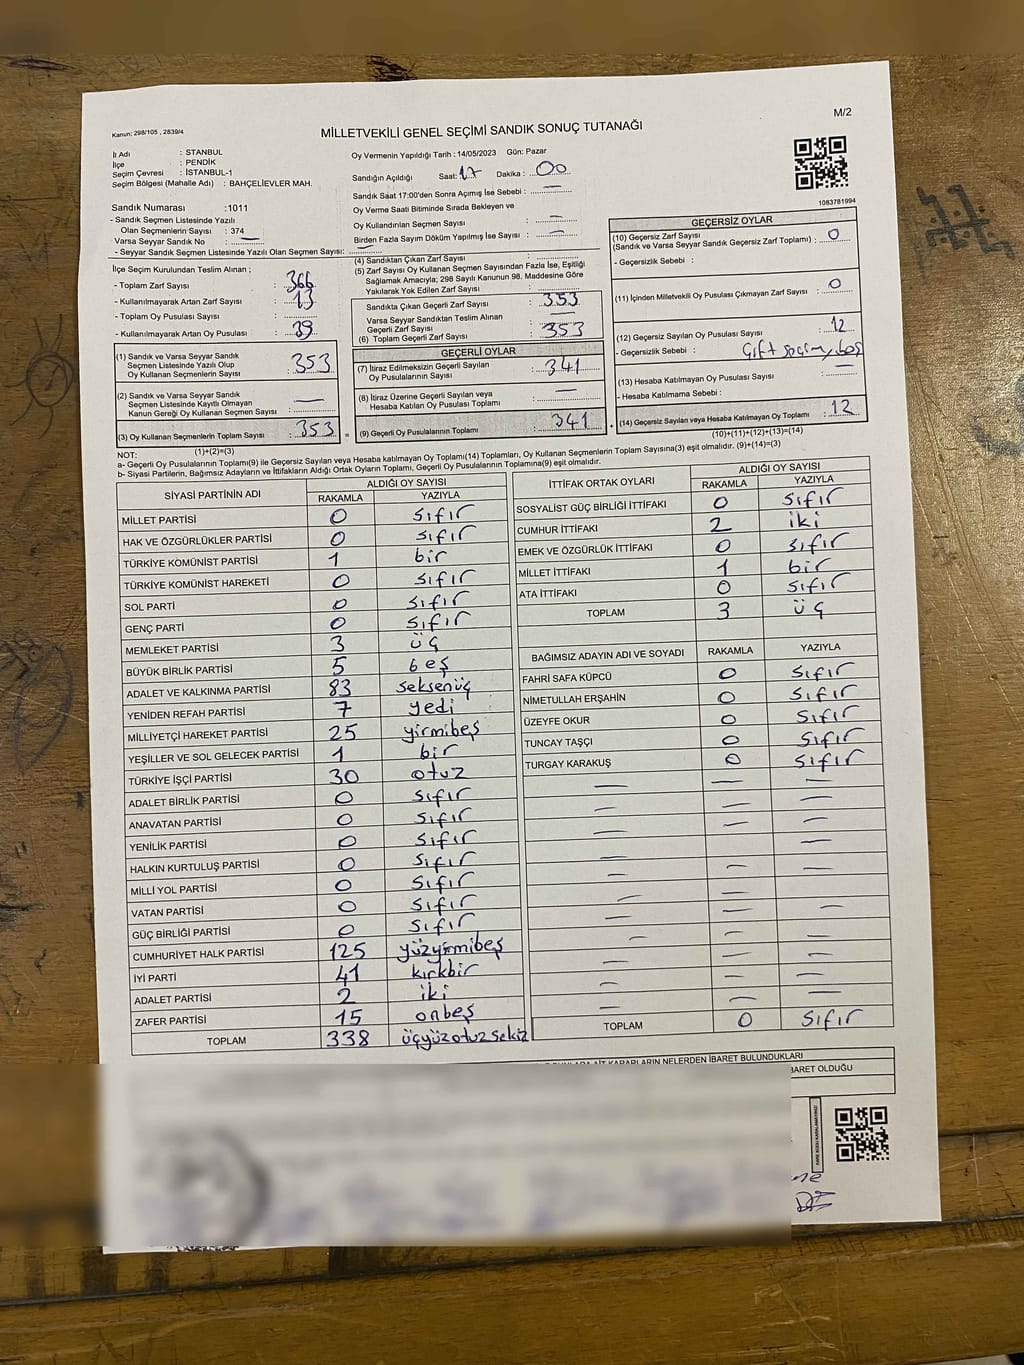 M/2
Kanun: 298/105 , 2839/4
MİLLETVEKİLİ GENEL SEÇİMİ SANDIK SONUÇ TUTANAĞI
İl Adı : STANBUL
İlçe : PENDİK
Seçim Çevresi : İSTANBUL-1
Seçim Bölgesi (Mahalle Adı) : BAHÇELİEVLER MAH.
Oy Vermenin Yapıldığı Tarih : 14/05/2023 Gün: Pazar
Sandığın Açıldığı Saat: 17 Dakika : 00
Sandık Saat 17:00'den Sonra Açımış İse Sebebi : —
Oy Verme Saati Bitiminde Sırada Bekleyen ve
Oy Kullandırılan Seçmen Sayısı : —
Birden Fazla Sayım Döküm Yapılmış İse Sayısı : —
Sandık Numarası :1011
- Sandık Seçmen Listesinde Yazılı
Olan Seçmenlerin Sayısı : 374
Varsa Seyyar Sandık No : —
- Seyyar Sandık Seçmen Listesinde Yazılı Olan Seçmen Sayısı: —
1083781994
İlçe Seçim Kurulundan Teslim Alınan ;
- Toplam Zarf Sayısı : 366
- Kullanılmayarak Artan Zarf Sayısı : 13
- Toplam Oy Pusulası :
- Kullanılmayarak Artan Oy Pusulası : 39
(1) Sandık ve Varsa Seyyar Sandık
Seçmen Listesinde Yazılı Olup
Oy Kullanan Seçmenlerin Sayısı : 353
(2) Sandık ve Varsa Seyyar Sandık
Seçmen Listesinde Kayıtlı Olmayan
Kanun Gereği Oy Kullanan Seçmen Sayısı : —
(3) Oy Kullanan Seçmenlerin Toplam Sayısı : 353
(1)+(2)=(3)
(4) Sandıktan Çıkan Zarf Sayısı :
(5) Zarf Sayısı Oy Kullanan Seçmen Sayısından Fazla İse, Eşitliği
Sağlamak Amacıyla; 298 Sayılı Kanunun 98. Maddesine Göre
Yakılarak Yok Edilen Zarf Sayısı :
Sandıkta Çıkan Geçerli Zarf Sayısı : 353
Varsa Seyyar Sandıktan Teslim Alınan
Geçerli Zarf Sayısı : —
(6) Toplam Geçerli Zarf Sayısı : 353
GEÇERLİ OYLAR
(7) İtiraz Edilmeksizin Geçerli Sayılan
Oy Pusulalarının Sayısı : 341
(8) İtiraz Üzerine Geçerli Sayılan veya
Hesaba Katılan Oy Pusulası Toplamı : —
= (9) Geçerli Oy Pusulalarının Toplamı : 341
GEÇERSİZ OYLAR
(10) Geçersiz Zarf Sayısı : 0
(Sandık ve Varsa Seyyar Sandık Geçersiz Zarf Toplamı)
- Geçersizlik Sebebi :
(11) İçinden Milletvekili Oy Pusulası Çıkmayan Zarf Sayısı : 0
(12) Geçersiz Sayılan Oy Pusulası Sayısı : 12
- Geçersizlik Sebebi : Çift seçim, boş
(13) Hesaba Katılmayan Oy Pusulası Sayısı : —
- Hesaba Katılmama Sebebi :
+ (14) Geçersiz Sayılan veya Hesaba Katılmayan Oy Toplamı : 12
(10)+(11)+(12)+(13)=(14)
NOT:
a- Geçerli Oy Pusulalarının Toplamı(9) ile Geçersiz Sayılan veya Hesaba katılmayan Oy Toplamı(14) Toplamları, Oy Kullanan Seçmenlerin Toplam Sayısına(3) eşit olmalıdır. (9)+(14)=(3)
b- Siyasi Partilerin, Bağımsız Adayların ve İttifakların Aldığı Ortak Oyların Toplamı, Geçerli Oy Pusulalarının Toplamına(9) eşit olmalıdır.
SİYASİ PARTİNİN ADI ALDIĞI OY SAYISI
RAKAMLA YAZIYLA
MİLLET PARTİSİ 0 sıfır
HAK VE ÖZGÜRLÜKLER PARTİSİ 0 sıfır
TÜRKİYE KOMÜNİST PARTİSİ 1 bir
TÜRKİYE KOMÜNİST HAREKETİ 0 sıfır
SOL PARTİ 0 sıfır
GENÇ PARTİ 0 sıfır
MEMLEKET PARTİSİ 3 üç
BÜYÜK BİRLİK PARTİSİ 5 beş
ADALET VE KALKINMA PARTİSİ 83 seksenüç
YENİDEN REFAH PARTİSİ 7 yedi
MİLLİYETÇİ HAREKET PARTİSİ 25 yirmibeş
YEŞİLLER VE SOL GELECEK PARTİSİ 1 bir
TÜRKİYE İŞÇİ PARTİSİ 30 otuz
ADALET BİRLİK PARTİSİ 0 sıfır
ANAVATAN PARTİSİ 0 sıfır
YENİLİK PARTİSİ 0 sıfır
HALKIN KURTULUŞ PARTİSİ 0 sıfır
MİLLİ YOL PARTİSİ 0 sıfır
VATAN PARTİSİ 0 sıfır
GÜÇ BİRLİĞİ PARTİSİ 0 sıfır
CUMHURİYET HALK PARTİSİ 125 yüzyirmibeş
İYİ PARTİ 41 kırkbir
ADALET PARTİSİ 2 iki
ZAFER PARTİSİ 15 onbeş
TOPLAM 338 üçyüzotuzsekiz
İTTİFAK ORTAK OYLARI ALDIĞI OY SAYISI
RAKAMLA YAZIYLA
SOSYALİST GÜÇ BİRLİĞİ İTTİFAKI 0 sıfır
CUMHUR İTTİFAKI 2 iki
EMEK VE ÖZGÜRLÜK İTTİFAKI 0 sıfır
MİLLET İTTİFAKI 1 bir
ATA İTTİFAKI 0 sıfır
TOPLAM 3 üç
BAĞIMSIZ ADAYIN ADI VE SOYADI RAKAMLA YAZIYLA
FAHRİ SAFA KÜPCÜ 0 sıfır
NİMETULLAH ERŞAHİN 0 sıfır
ÜZEYFE OKUR 0 sıfır
TUNCAY TAŞÇI 0 sıfır
TURGAY KARAKUŞ 0 sıfır
TOPLAM 0 sıfır
KARARLARIN NELERDEN İBARET BULUNDUKLARI
BARET OLDUĞU